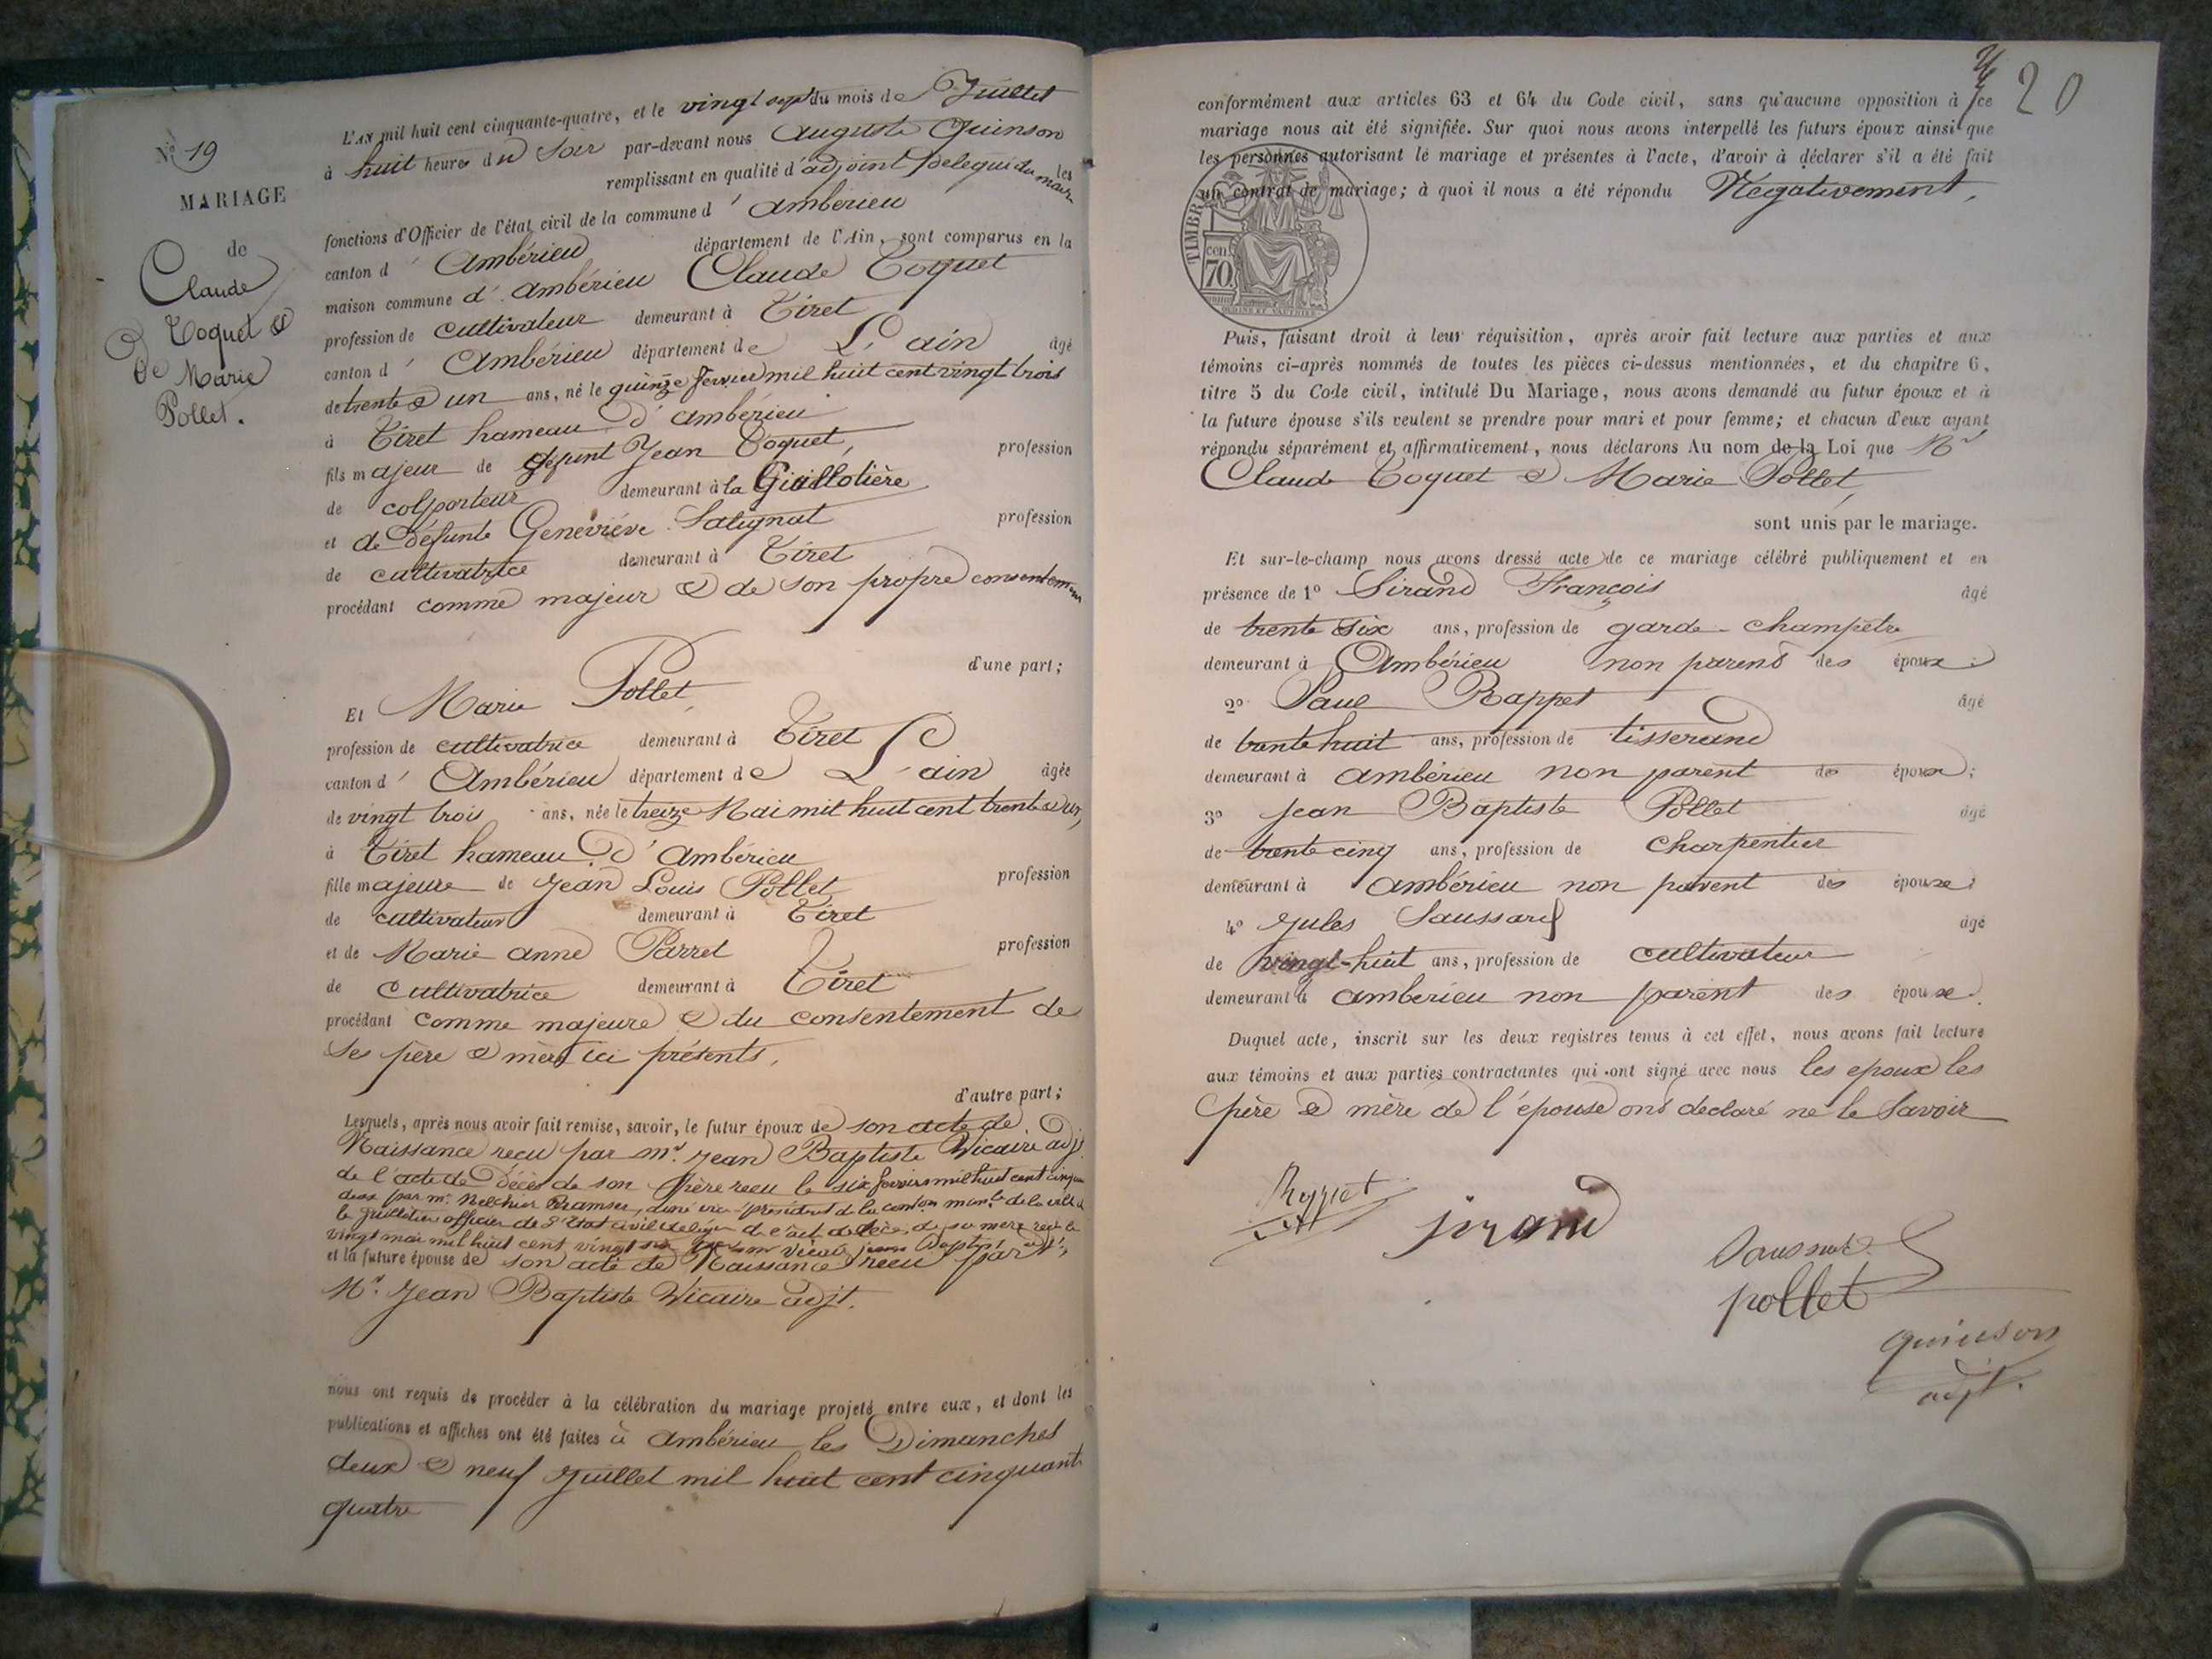 N° 19
MARIAGE
de
Claude
Coquet &
De Marie
Pollet.
L'AN mil huit cent cinquante-quatre, et le vingt sept du mois de Juillet
à huit heures du Soir par-devant nous Auguste Quinson
remplissant en qualité d'adjoint délégué du maire les
fonctions d'Officier de l'état civil de la commune d' ambérieu
canton d' Ambérieu département de l'Ain, sont comparus en la
maison commune d'ambérieu Claude Coquet
profession de cultivateur demeurant à Tiret
canton d' Ambérieu département de L'ain âgé
de trente & un ans, né le quinze février mil huit cent vingt trois
à Tiret hameau d'ambérieu
fils majeur de défunt Jean Coquet, profession
de colporteur demeurant à la Guillotière
et de Défunte Geneviève Salignat profession
de cultivatrice demeurant à Tiret
procédant comme majeur & de son propre consentement
d'une part;
Et Marie Pollet,
profession de cultivatrice demeurant à Tiret
canton d' Ambérieu département de L'ain âgée
de vingt trois ans, née le treize Mai mil huit cent trente & un,
à Tiret hameau d'Ambérieu
fille majeure de Jean Louis Pollet profession
de cultivateur demeurant à Tiret
et de Marie anne Parret profession
de Cultivatrice demeurant à Tiret
procédant comme majeure & du consentement de
Ses père & mère ici présents,
d'autre part;
Lesquels, après nous avoir fait remise, savoir, le futur époux de son acte de
Naissance recu par mr. Jean Baptiste Vicaire adjt.
de l'acte de Décès de son père recu le six février mil huit cent cinquante
deux par mr. Melchior vice-président de la de la ville de
la Guillotière officier de l'Etat civil de l'acte de Décès de sa mère recu le
vingt mai mil huit cent vingt six par mr Vicaire jean Baptiste adjt;
et la future épouse de son acte de Naissance recu par
Mr. Jean Baptiste Vicaire adjt.
nous ont requis de procéder à la célébration du mariage projeté entre eux, et dont les
publications et affiches ont été faites à Ambérieu les Dimanches
deux & neuf Juillet mil huit cent cinquante
quatre
20
conformément aux articles 63 et 64 du Code civil, sans qu'aucune opposition à ce
mariage nous ait été signifiée. Sur quoi nous avons interpellé les futurs époux ainsi que
les personnes autorisant le mariage et présentes à l'acte, d'avoir à déclarer s'il a été fait
un contrat de mariage; à quoi il nous a été répondu Négativement,
TIMBRE
70 cen.
Puis, faisant droit à leur réquisition, après avoir fait lecture aux parties et aux
témoins ci-après nommés de toutes les pièces ci-dessus mentionnées, et du chapitre 6,
titre 5 du Code civil, intitulé Du Mariage, nous avons demandé au futur époux et à
la future épouse s'ils veulent se prendre pour mari et pour femme; et chacun d'eux ayant
répondu séparément et affirmativement, nous déclarons Au nom de la Loi que Mr
Claude Coquet & Marie Pollet,
sont unis par le mariage.
Et sur-le-champ nous avons dressé acte de ce mariage célébré publiquement et en
présence de 1° Sirand François âgé
de trente six ans, profession de garde-champêtre
demeurant à Ambérieu non parens des époux;
2° Paul Rappet âgé
de trente huit ans, profession de tisserand
demeurant à ambérieu non parent des époux;
3° Jean Baptiste Pollet âgé
de trente cinq ans, profession de Charpentier
demeurant à ambérieu non parent des époux;
4° Jules Saussard âgé
de vingt-huit ans, profession de cultivateur
demeurant à amberieu non parent des époux.
Duquel acte, inscrit sur les deux registres tenus à cet effet, nous avons fait lecture
aux témoins et aux parties contractantes qui ont signé avec nous les epoux les
père & mère de l'épouse ons declaré ne le Savoir
Rappet
sirand
Saussard
pollet
quinson
adjt.